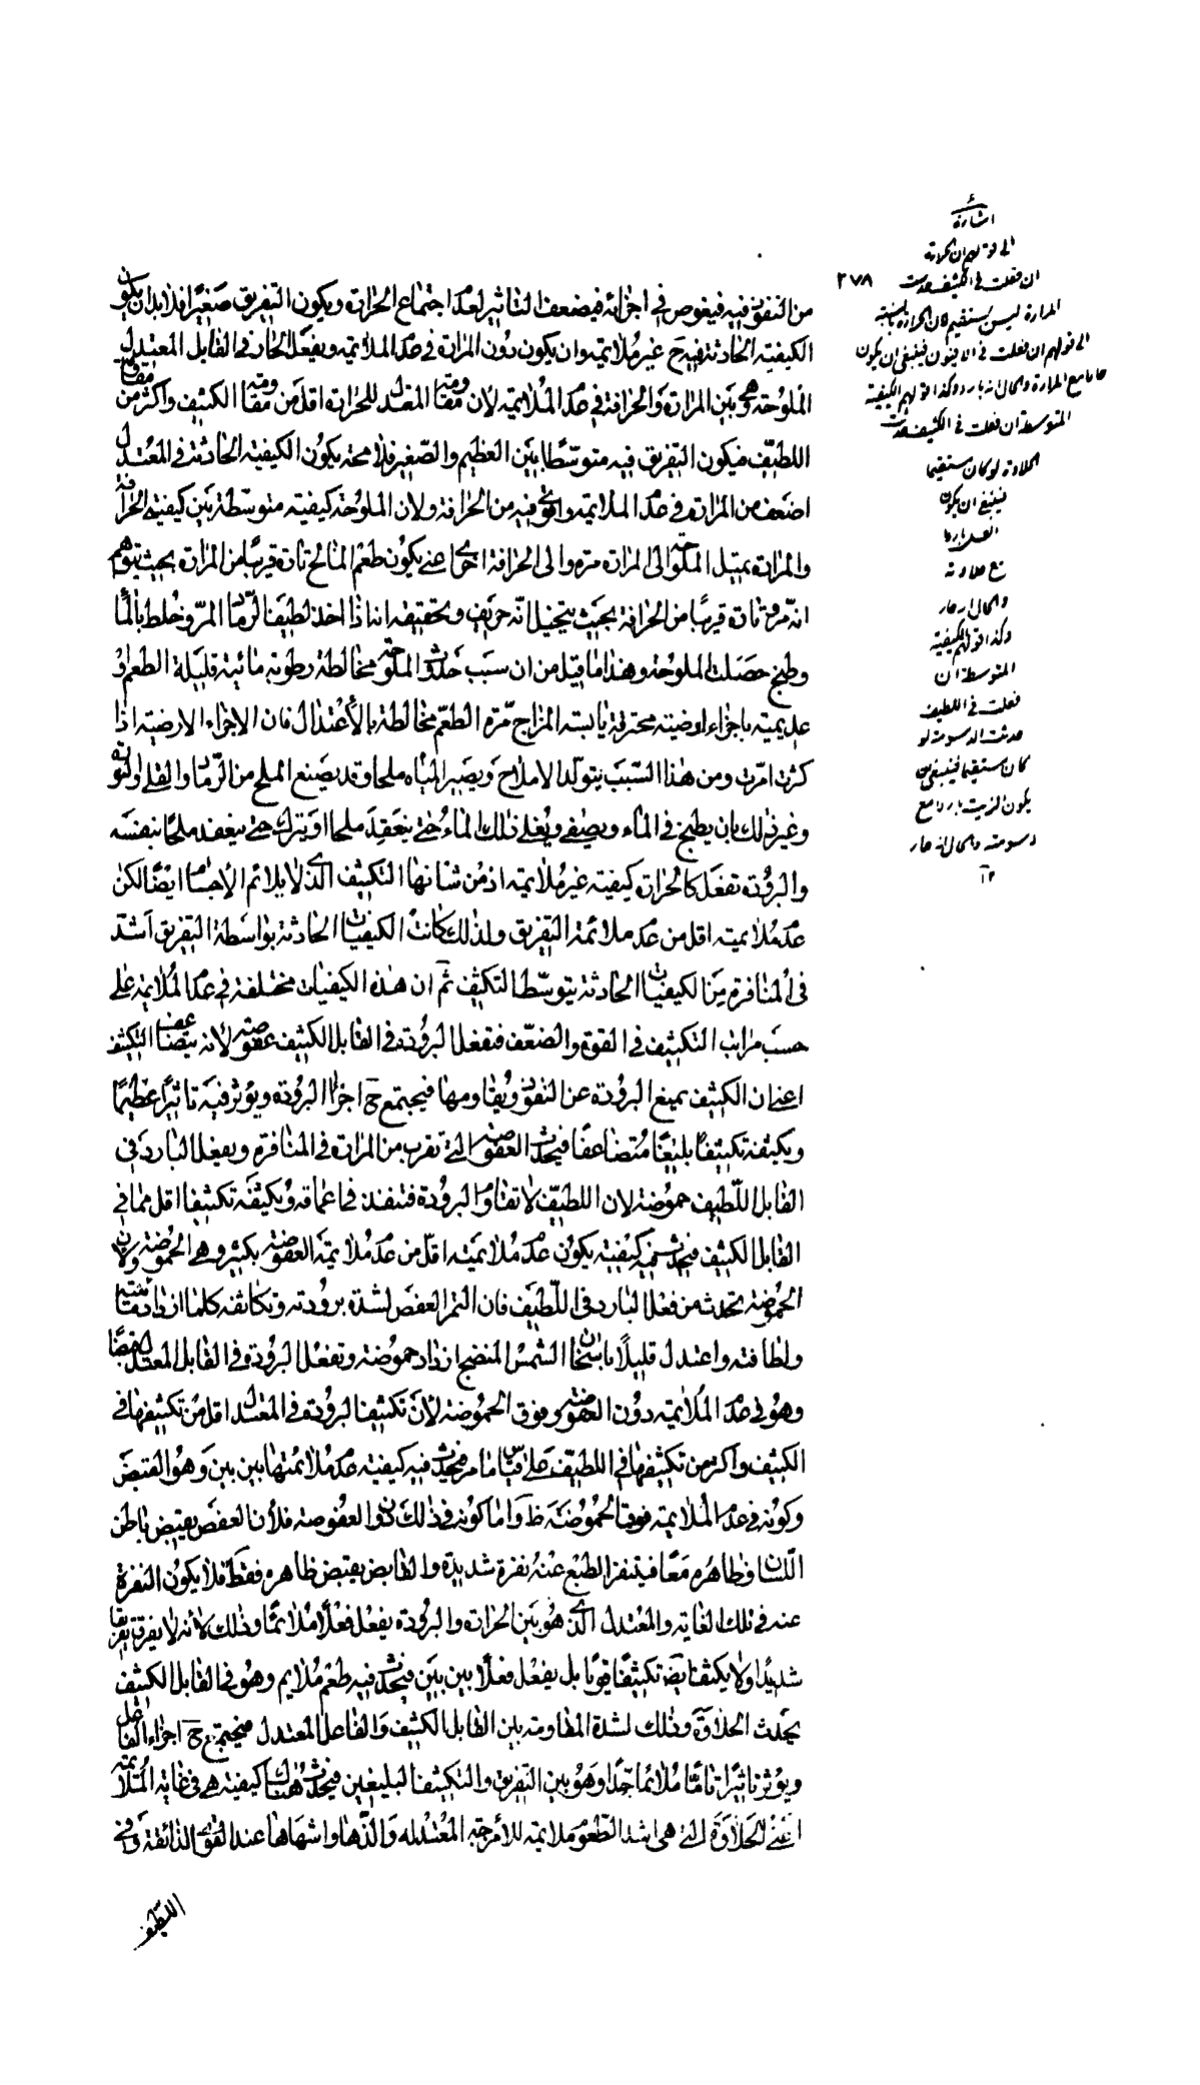 اشارة
الى قولهم ان الحرارة
ان فعلت فى الكثيف حدثت
٢٧٨
المرارة ليس بمستقيم لان الحرارة بالنسبة
الى قولهم ان فعلت فى الافيون فينبغى ان يكون
حارا مع المرارة والحال انه بارد وكذا قولهم الكيفية
المتوسطة ان فعلت فى الكثيف حدثت
الحلاوة لو كان مستقيما
فينبغى ان يكون
العسل باردا
مع حلاوته
والحال انه حار
وكذا قولهم الكيفية
المتوسطة ان
فعلت فى اللطيف
حدثت الدسومة لو
كان مستقيما فينبغى ان
يكون الزيت باردا مع
دسومته والحال انه حار
١٢
من النفوذ فيه فيغوص فى اجزائه فيضعف التاثير لعدم اجتماع الحرارة ويكون التفريق صغيرا فلا بد ان يكون
الكيفية الحادثة فيه ح غير ملايمة وان يكون دون المرارة فى عدم الملايمة ويفعل الحار فى القابل المعتدل
الملوحة وهى بين المرارة والحرافة فى عدم الملايمة لان مقاومة المعتدل للحرارة اقل من مقاومة الكثيف واكثر من مقاومة
اللطيف فيكون التفريق فيه متوسطا بين العظيم والصغير فلا محة يكون الكيفية الحادثة فى المعتدل
اضعف من المرارة فى عدم الملايمة واقوى فيه من الحرافة ولان الملوحة كيفية متوسطة بين كيفيتى الحرافة
والمرارة يميل الملوحة الى المرارة مرة والى الحرافة اخرى اعنى يكون طعم المالح تارة قريبا من المرارة بحيث يتوهم
انه مر وتارة قريبا من الحرافة بحيث يتخيل انه حريف وتحقيقه انا اذا اخذ لطيف الرماد المر وخلط بالماء
وطبخ حصلت الملوحة وهذا ما قيل من ان سبب حدوث الملوحة مخالطة رطوبة مائية قليلة الطعم او
عديمته باجزاء ارضية محترقة يابسة المزاج مرة الطعم مخالطة بالاعتدال فان الاجزاء الارضية اذا
كثرت امرت ومن هذا السبب يتولد الاملاح ويصير المياه ملحا وقد يصنع الملح من الرماد والقلى والنورة
وغير ذلك بان يطبخ فى الماء ويصفى ويغلى ذلك الماء حتى ينعقد ملحا او يترك حتى ينعقد ملحا بنفسه
والبرودة تفعل كالحرارة كيفية غير ملايمة اذ من شانها التكثيف الذى لا يلائم الاجسام ايضا لكن
عدم ملايمته اقل من عدم ملائمة التفريق ولذلك كانت الكيفيات الحادثة بواسطة التفريق اشد
فى المنافرة من الكيفيات الحادثة بتوسط التكثيف ثم ان هذه الكيفيات مختلفة فى عدم الملايمة على
حسب مراتب التكثيف فى القوة والضعف فتفعل البرودة فى القابل الكثيف عفوصة لانه يتضاعف التكثيف
اعنى ان الكثيف يمنع البرودة عن النفوذ ويقاومها فيجتمع ح اجزاء البرودة ويؤثر فيه تاثيرا عظيما
ويكثفه تكثيفا بليغا متضاعفا فيحدث العفوصة التى تقرب من المرارة فى المنافرة ويفعل البارد فى
القابل اللطيف حموضة لان اللطيف لا يقاوم البرودة فتنفذ فى اعماقه ويكثفه تكثيفا اقل مما فى
القابل الكثيف فيحدث فيه كيفية يكون عدم ملايمته اقل من عدم ملايمة العفوصة بكثير وهى الحموضة ولان
الحموضة تحدث من فعل البارد فى اللطيف فان الثمر العفص لشدة برودته وتكاثفه كلما ازداد مائيته
ولطافته واعتدل قليلا باسخان الشمس المنضج ازداد حموضة وتفعل البرودة فى القابل المعتدل قبضا
وهو فى عدم الملايمة دون العفوصة وفوق الحموضة لان تكثيف البرودة فى المعتدل اقل من تكثيفها فى
الكثيف واكثر من تكثيفها فى اللطيف على قياس ما مر فيحدث فيه كيفية عدم ملائمتها بين بين وهو القبض
وكونه فى عدم الملايمة فوق الحموضة ظ واما كونه فى ذلك دون العفوصة فلان العفص يقبض باطن
اللسان وظاهره معا فيتنفر الطبع عنه نفرة شديدة والقابض يقبض ظاهره فقط فلا يكون النفرة
عنه فى تلك الغاية والمعتدل الذى هو بين الحرارة والبرودة يفعل فعلا ملائما وذلك لانه لا يفرق تفريقا
شديدا ولا يكثف ايضا تكثيفا قويا بل يفعل فعلا بين بين فيحدث فيه طعم ملايم وهو فى القابل الكثيف
يحدث الحلاوة وذلك لشدة المقاومة بين القابل الكثيف والفاعل المعتدل فيجتمع ح اجزاء الفاعل
ويؤثر تاثيرا تاما ملائما جدا وهو بين التفريق والتكثيف البليغين فيحدث هناك كيفية هى فى غاية الملايمة
اعنى الحلاوة التى هى اشد الطعوم ملايمة للامزجة المعتدلة والذها واشهاها عند القوة الذائقة وفى
اللطيف